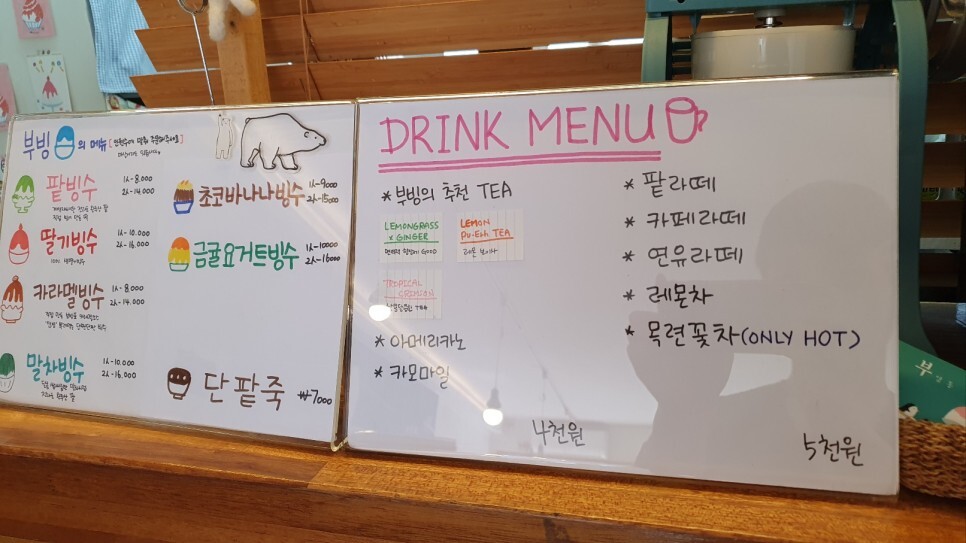 부빙의 메뉴
팥빙수 1人-8.000
2人-14.000
딸기빙수 1人-10.000
2人-16.000
카라멜빙수 1人-8.000
2人-14.000
말차빙수 1人-10.000
2人-16.000
초코바나나빙수 1人-9000
2人-15000
금귤요거트빙수 1人-10000
2人-16000
단팥죽 ₩7000
DRINK MENU
* 부빙의 추천 TEA
LEMONGRASS
x GINGER
면역력 향상에 GOOD
LEMON
PU-ERH TEA
레몬 보이차
TROPICAL
CRIMSON
TEA
* 아메리카노
* 카모마일
4천원
* 팥라떼
* 카페라떼
* 연유라떼
* 레몬차
* 목련꽃차(ONLY HOT)
5천원
부